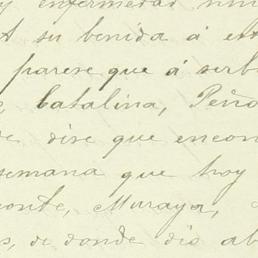 y enfermedad nin
A su benida á est
parese que á serb
Catalina, Peño
de, dise que encon
semana que hoy
onte, Muraya,
s, de donde dis ab